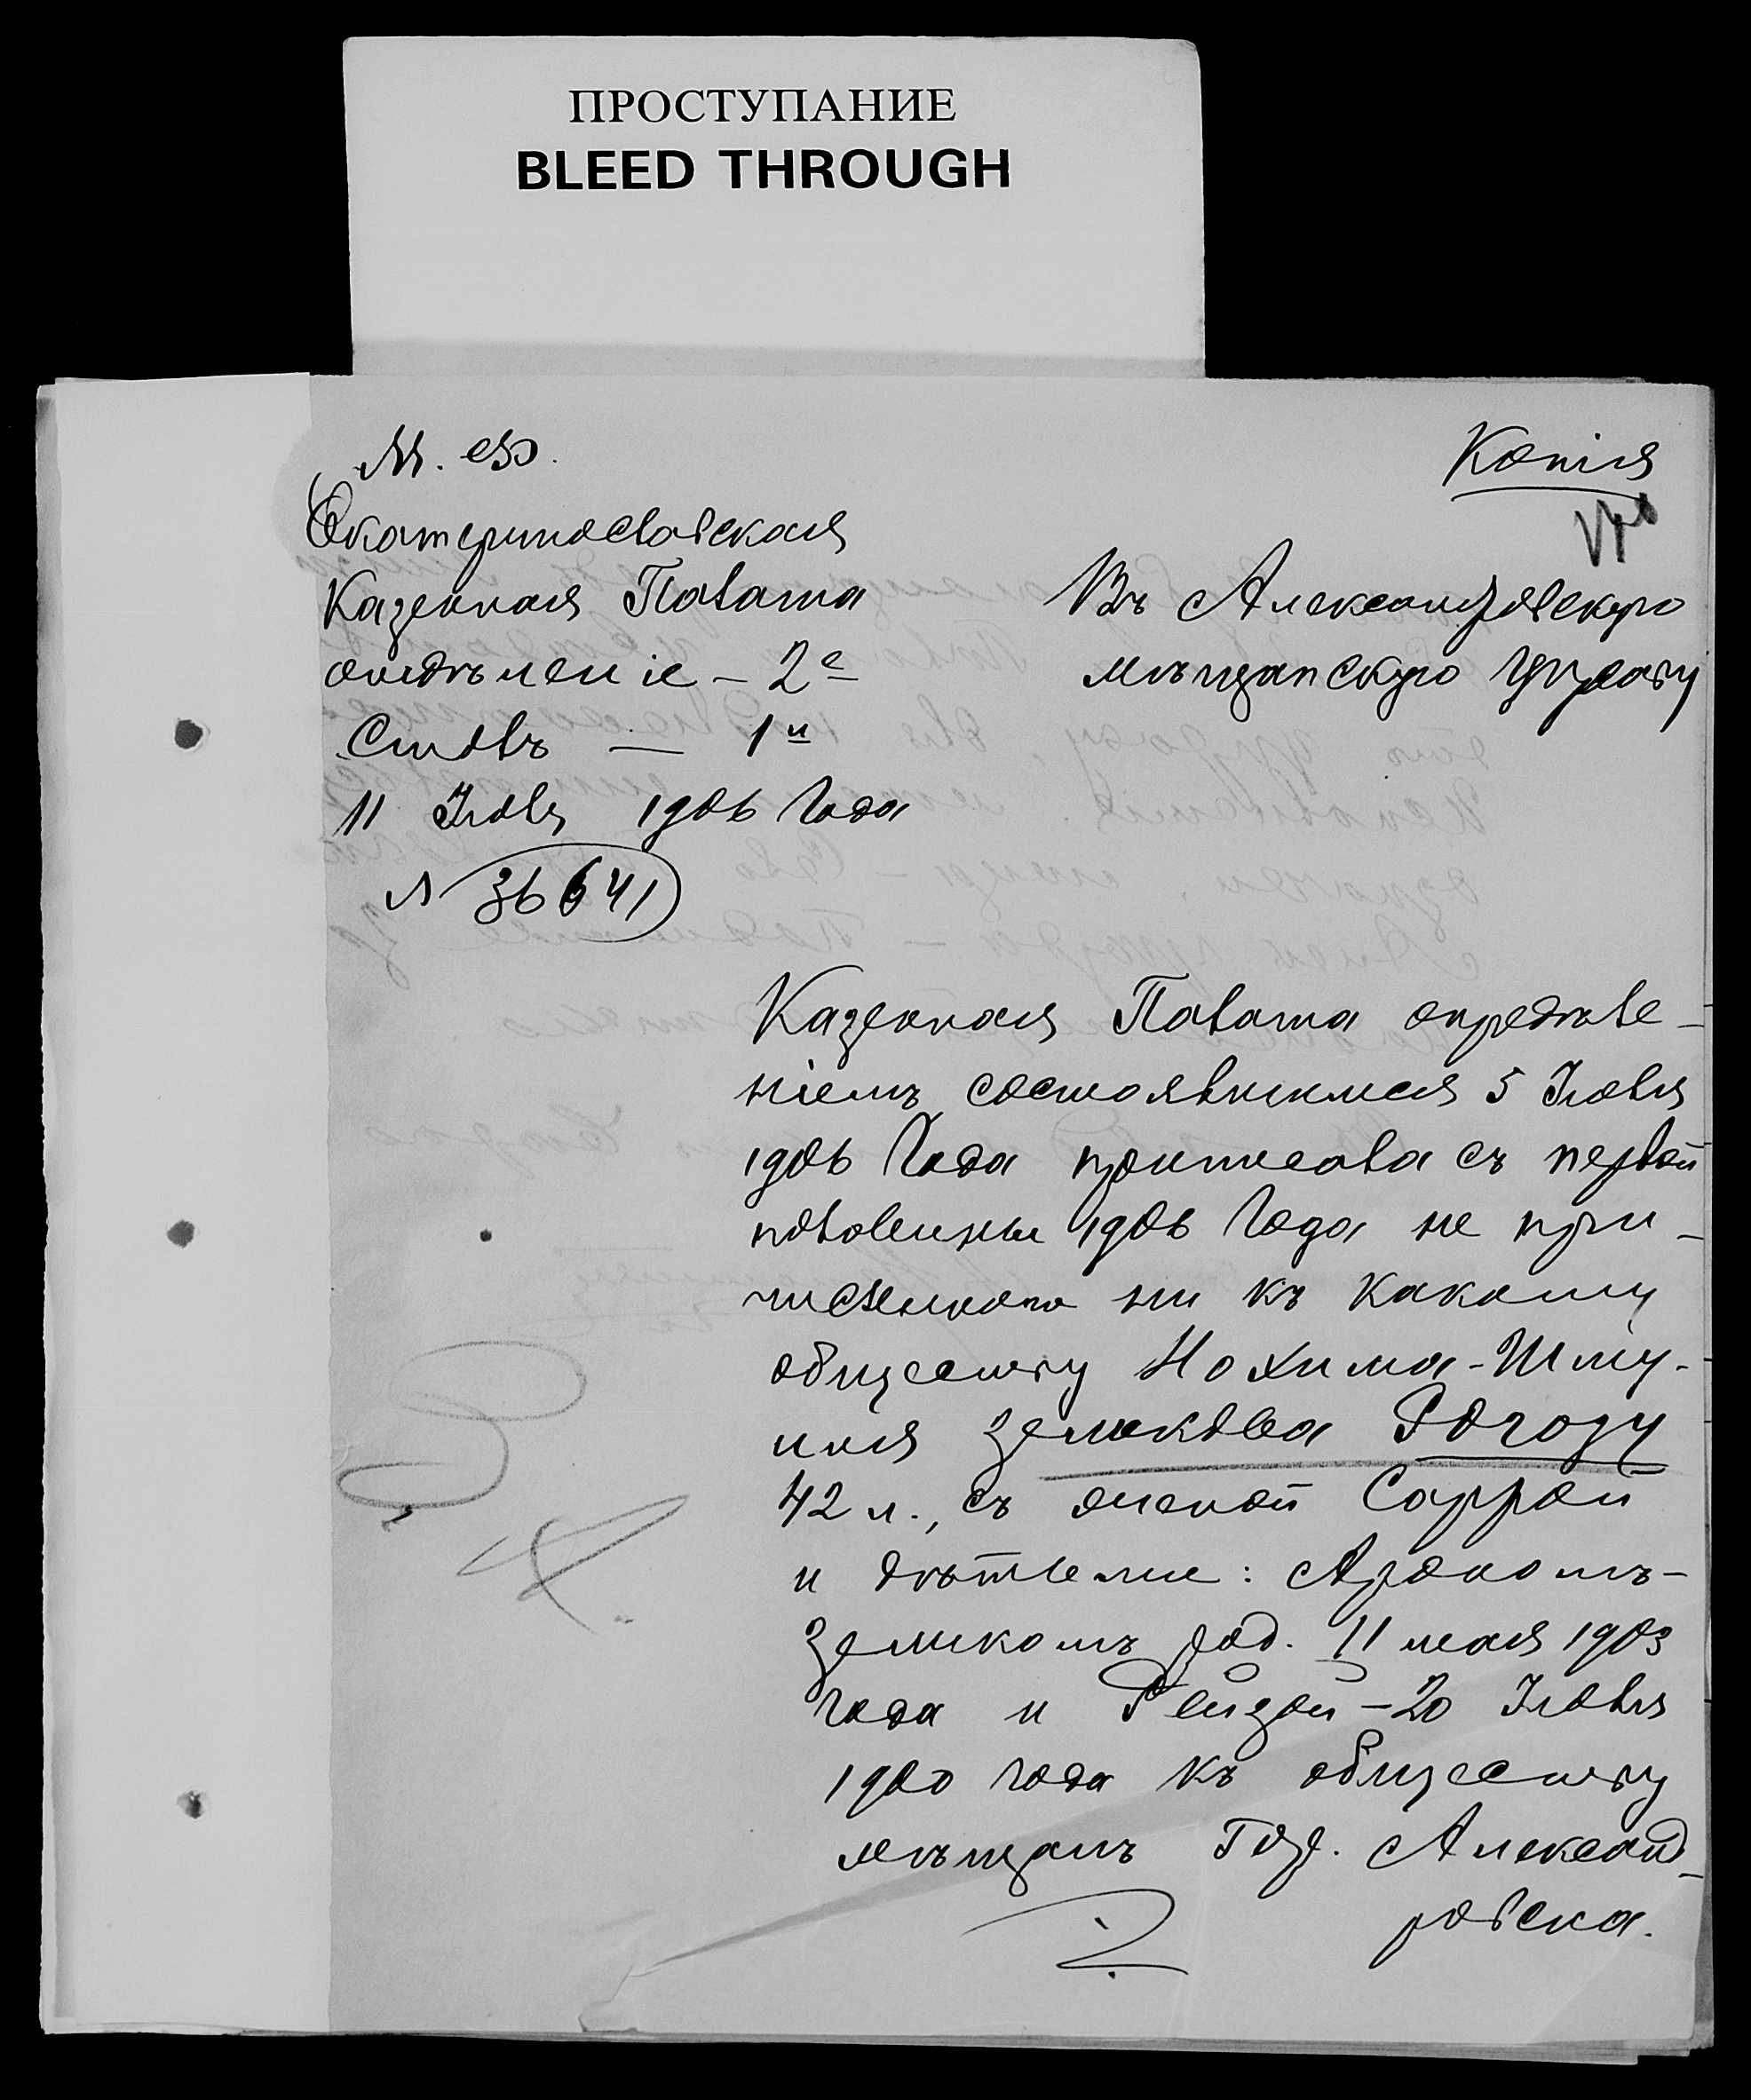 ПРОСТУПАНИЕ
BLEED THROUGH
Копія
М. Ф.
Екатеринославская
Казенная Палата
отдѣленіе - 2е
Столъ — 1й
11 Іюля 1906 года
№ 36641
Въ Александровскую
мѣщанскую Управу
Казенная Палата опредѣле-
ніемъ состоявшимся 5 Іюля
1906 года причислила съ первой
половины 1906 года не при-
численного ни къ какому
обществу Нохима-Шму-
иля Зеликова Рогозу
42 л., съ женой Саррой
и дѣтьми: Арономъ-
Зеликомъ род. 11 мая 1903
года и Рейзой - 20 Іюля
1900 года къ обществу
мѣщанъ гор. Александ-
ровска.